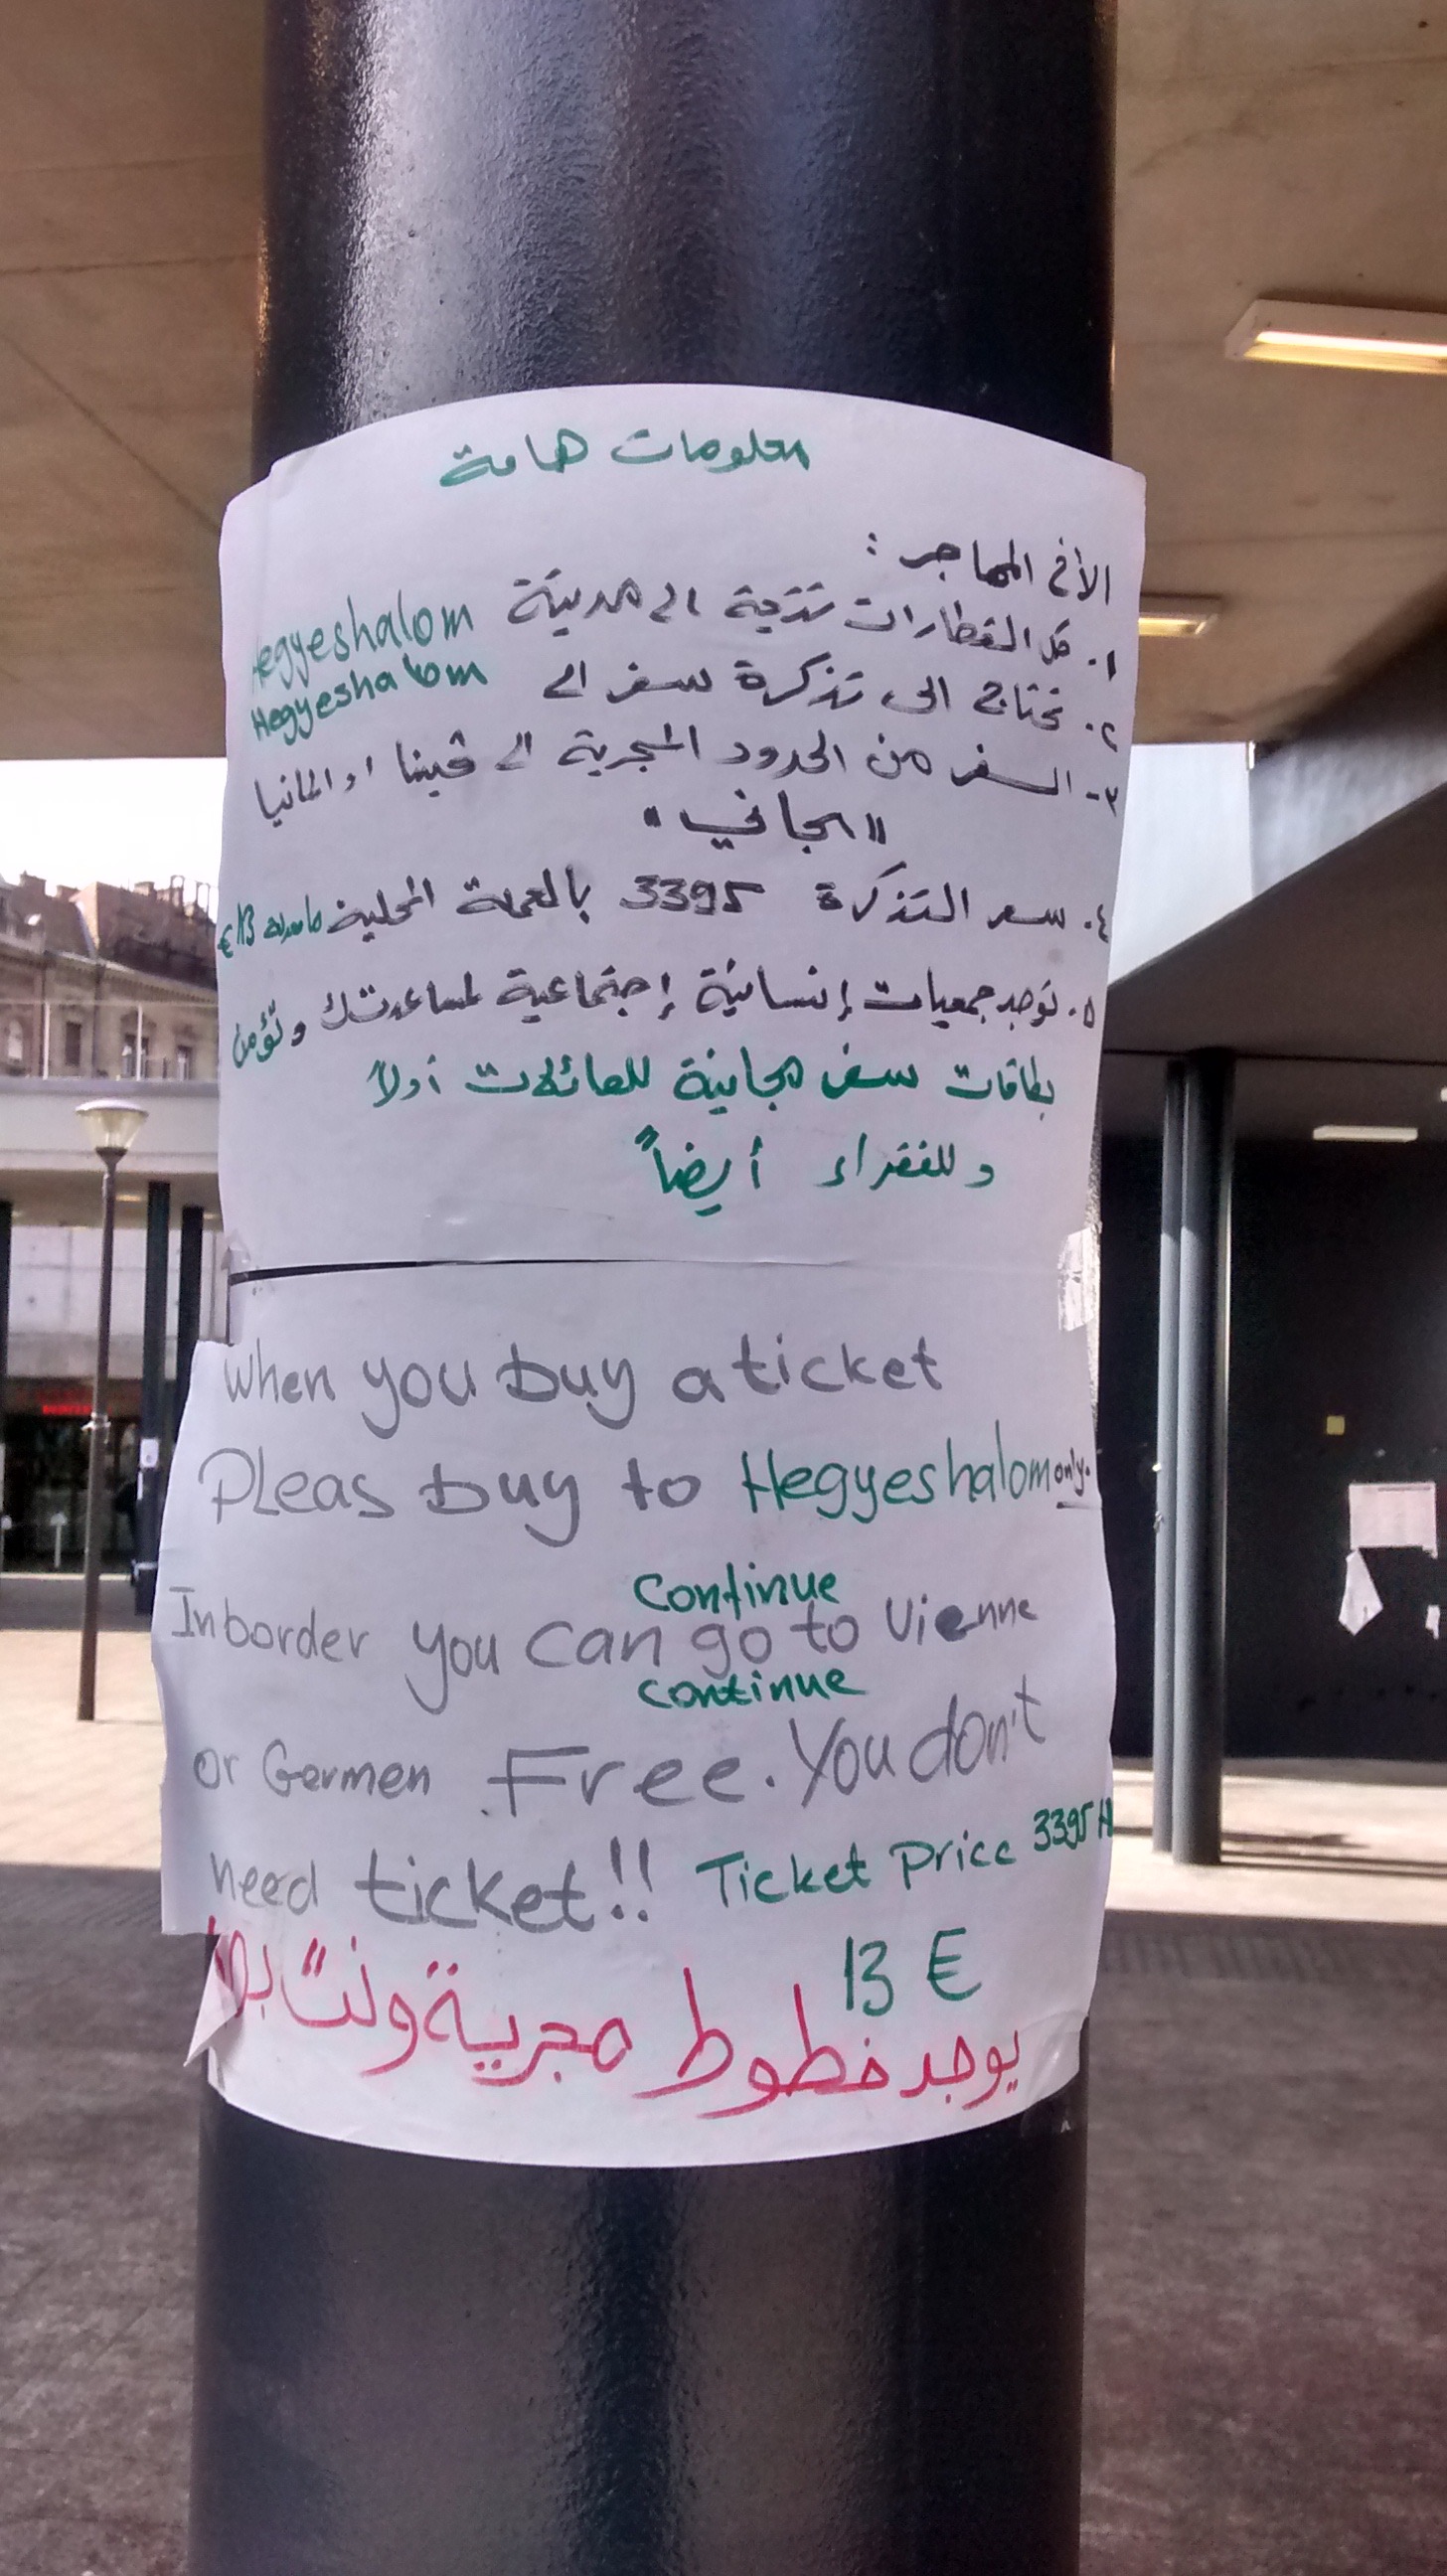 معلومات هامة
الأخ المهاجر :
١. كل القطارات تتجة الى مدينة Hegyeshalom
٢. تحتاج الى تذكرة سفر الى Hegyeshalom
٣- السفر من الحدود المجرية الى فيينا او المانيا
"مجاني"
٤. سعر التذكرة 3395 بالعملة المحلية 13 €
٥. توجد جمعيات إنسانية إجتماعية لمساعدتك وتؤمن
بطاقات سفر مجانية للعائلات أولاً
وللفقراء أيضاً
When you buy a ticket
PLeas buy to Hegyeshalom only.
Continue
In border you can go to Vienne
continue
or Germen Free. You don't
need ticket!! Ticket Price 3395 H
13 €
يوجد خطوط مجرية ونت